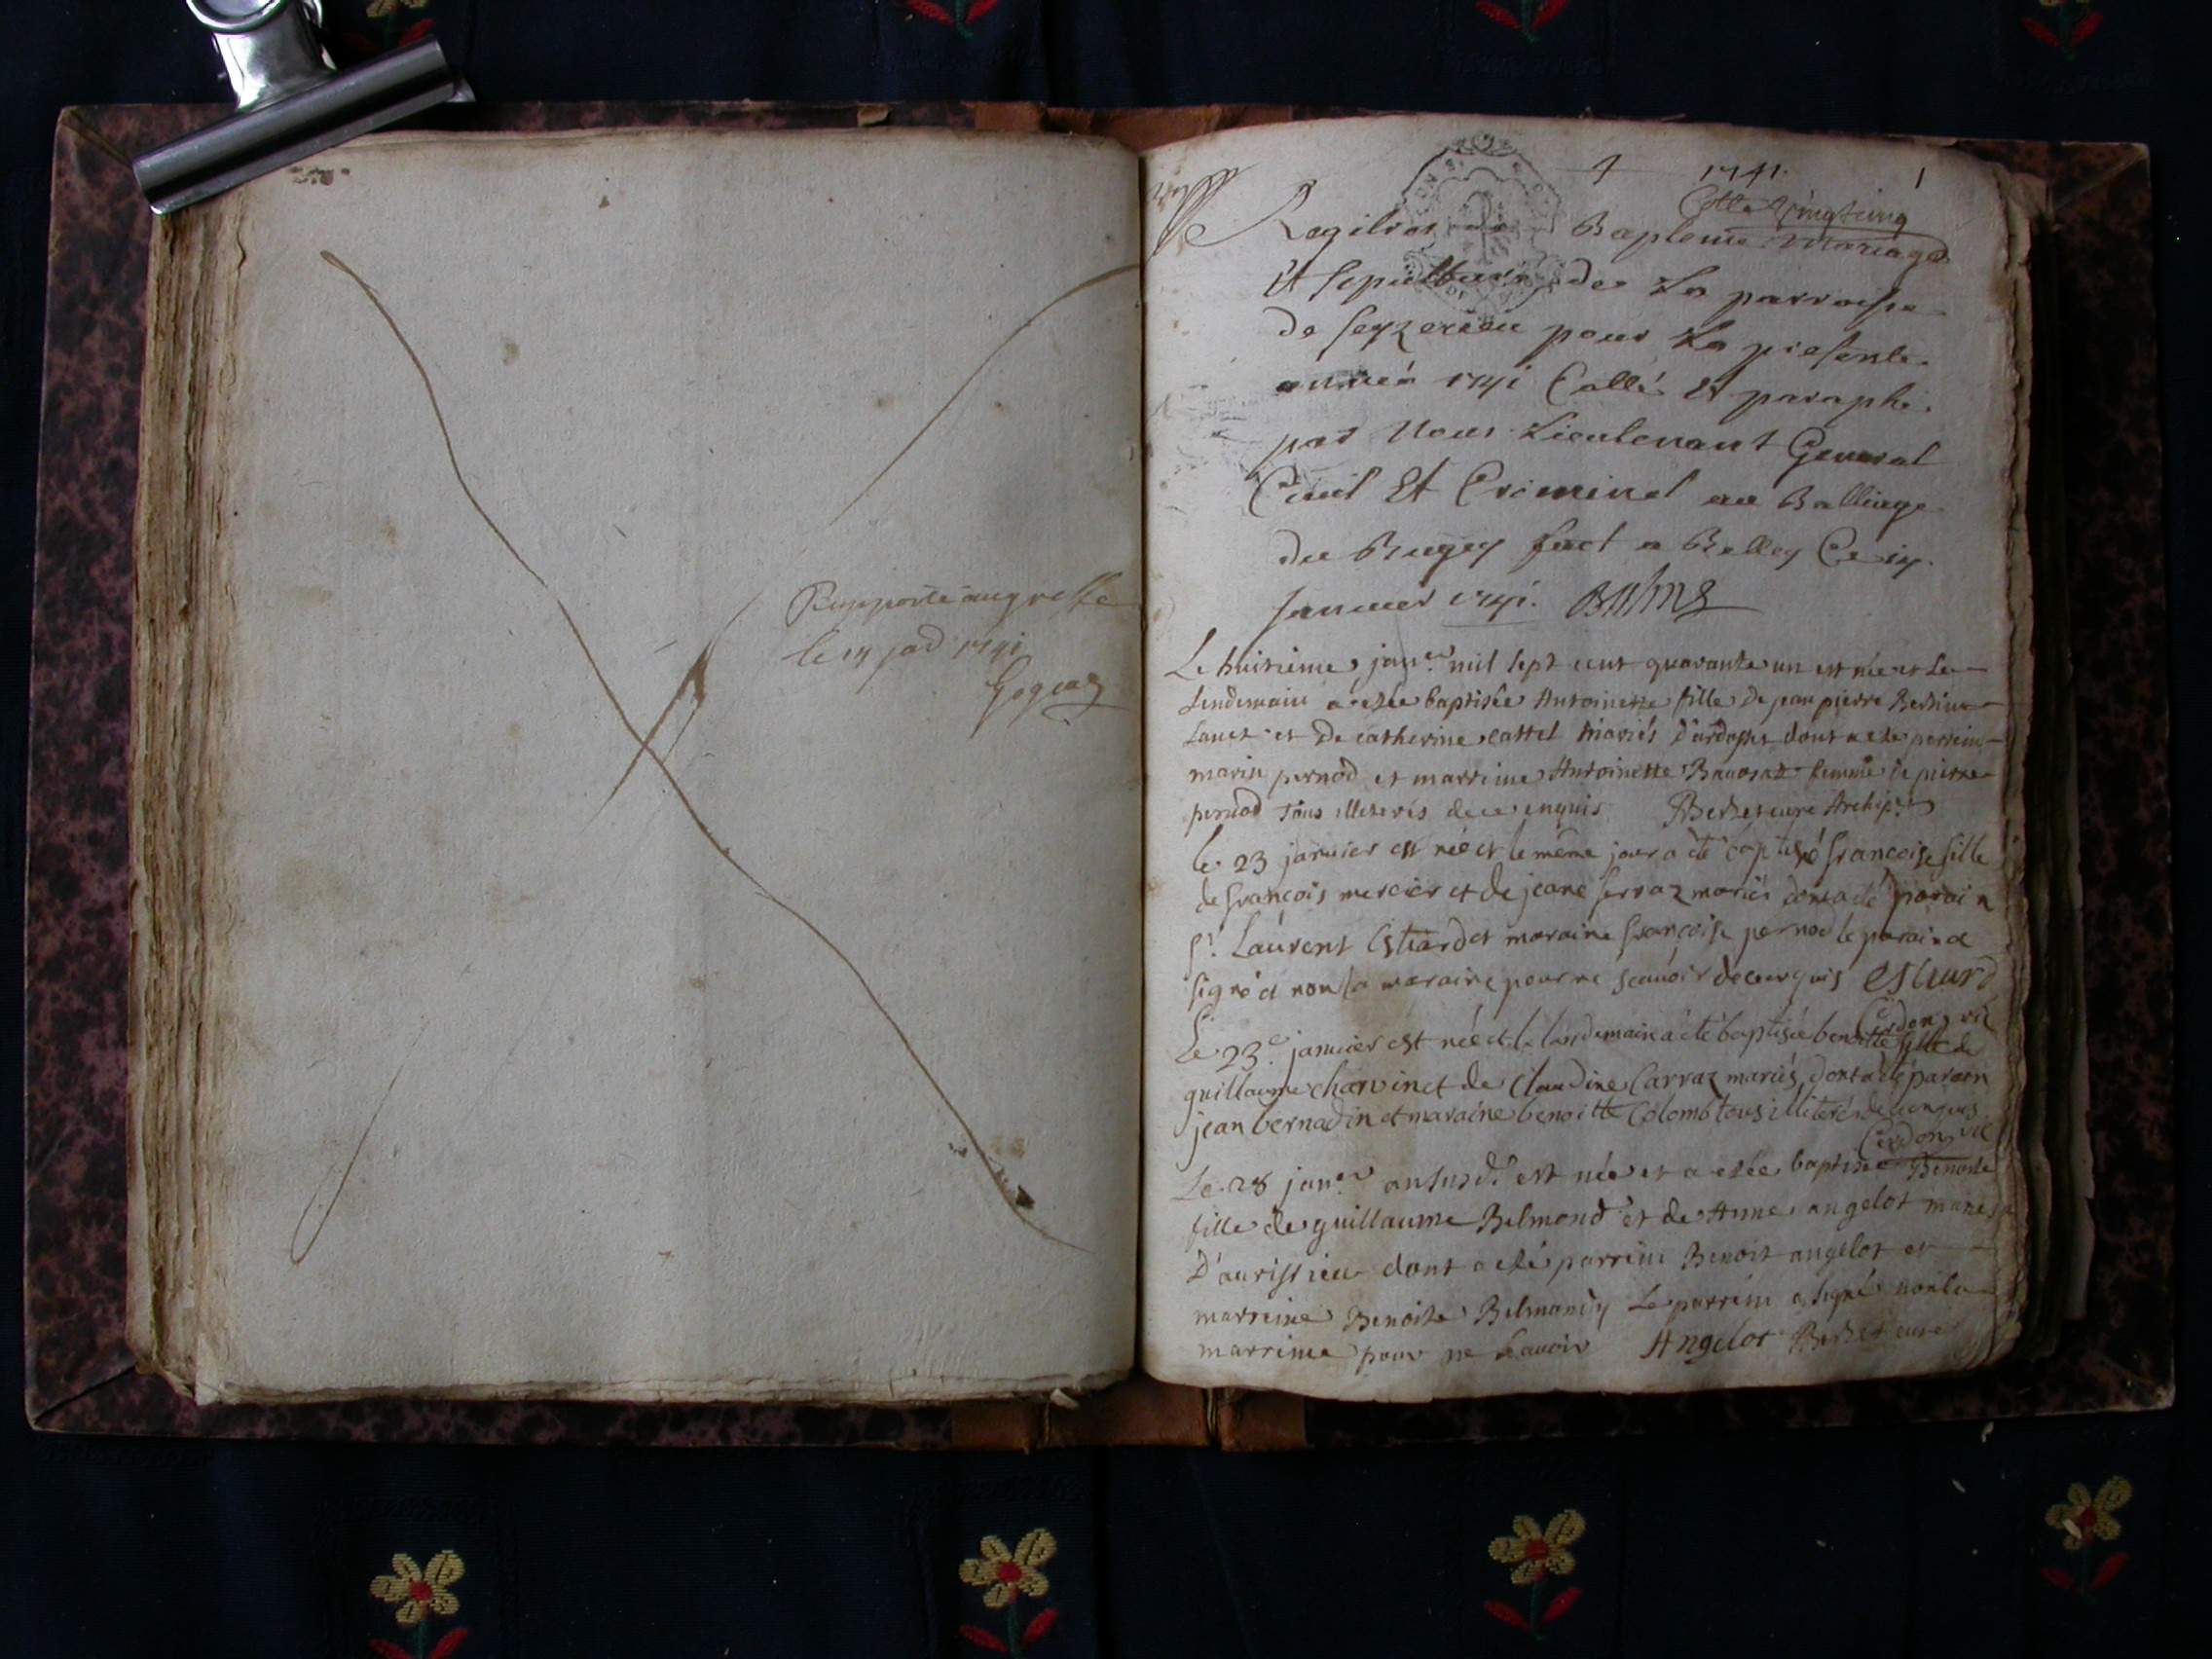 Rapporté au greffe
le 14 1741
1 1741. 1
Cotte Vingt cinq
Registres de Bapteme Mariage
Et sepultures de La parroisse
De seyzerieu pour La presente
année 1741 Cotté Et paraphé
par Nous Lieutenant General
Civil Et Criminel au Balliage
du Bugey fact a Belley Ce
Janvier 1741.
Le huitieme janer mil sept cent quarante un est née et le
lendemain a estée baptisée Antoinette fille de jean pierre
et De catherine cattel mariés D'ardosset dont a esté perrein
marin pernod et marreine Antoinette femme de pierre
pernod Tous illeterés de ce enquis Berthet curé Archip.
le 23 janvier est née et le même jour a été baptisé francoise fille
de françois mercier et de jeane ferraz mariés dont a été parain
Sr. Laurent Estiard et maraine françoise pernod le parain a
signé et non la maraine pour ne scavoir de ce enquis
Cerdon vic
Le 23e janvier est née et le landemain a été baptisée benoitte fille de
guillaume charvin et de Claudine Carraz mariés, dont a été parain
jean bernadin et maraine benoitte Colomb tous illiterés de ce enquis
Cerdon vic
Le 28 janer an susd. est née et a estée baptisée Benoite
fille de guillaume Belmond et de Anne angelot mariés
D'avrissieu dont a esté parrein Benoit angelot et
marreine Benoite Belmond Le parrein a signé non la
marreine pour ne scavoir Angelot Berthet curé